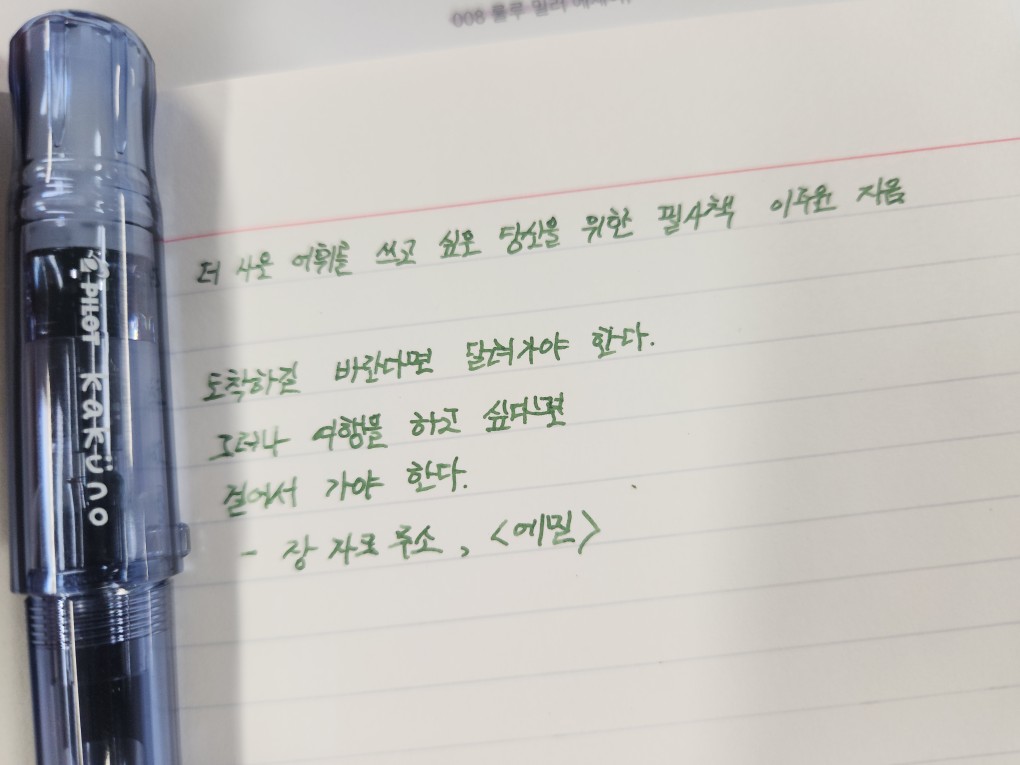 008 룰루 밀러 에세이,
더 나은 어휘를 쓰고 싶은 당신을 위한 필사책 이주윤 지음
도착하길 바란다면 달려가야 한다.
그러나 여행을 하고 싶다면
걸어서 가야 한다.
- 장 자크 루소, <에밀>
PILOT KaKüno